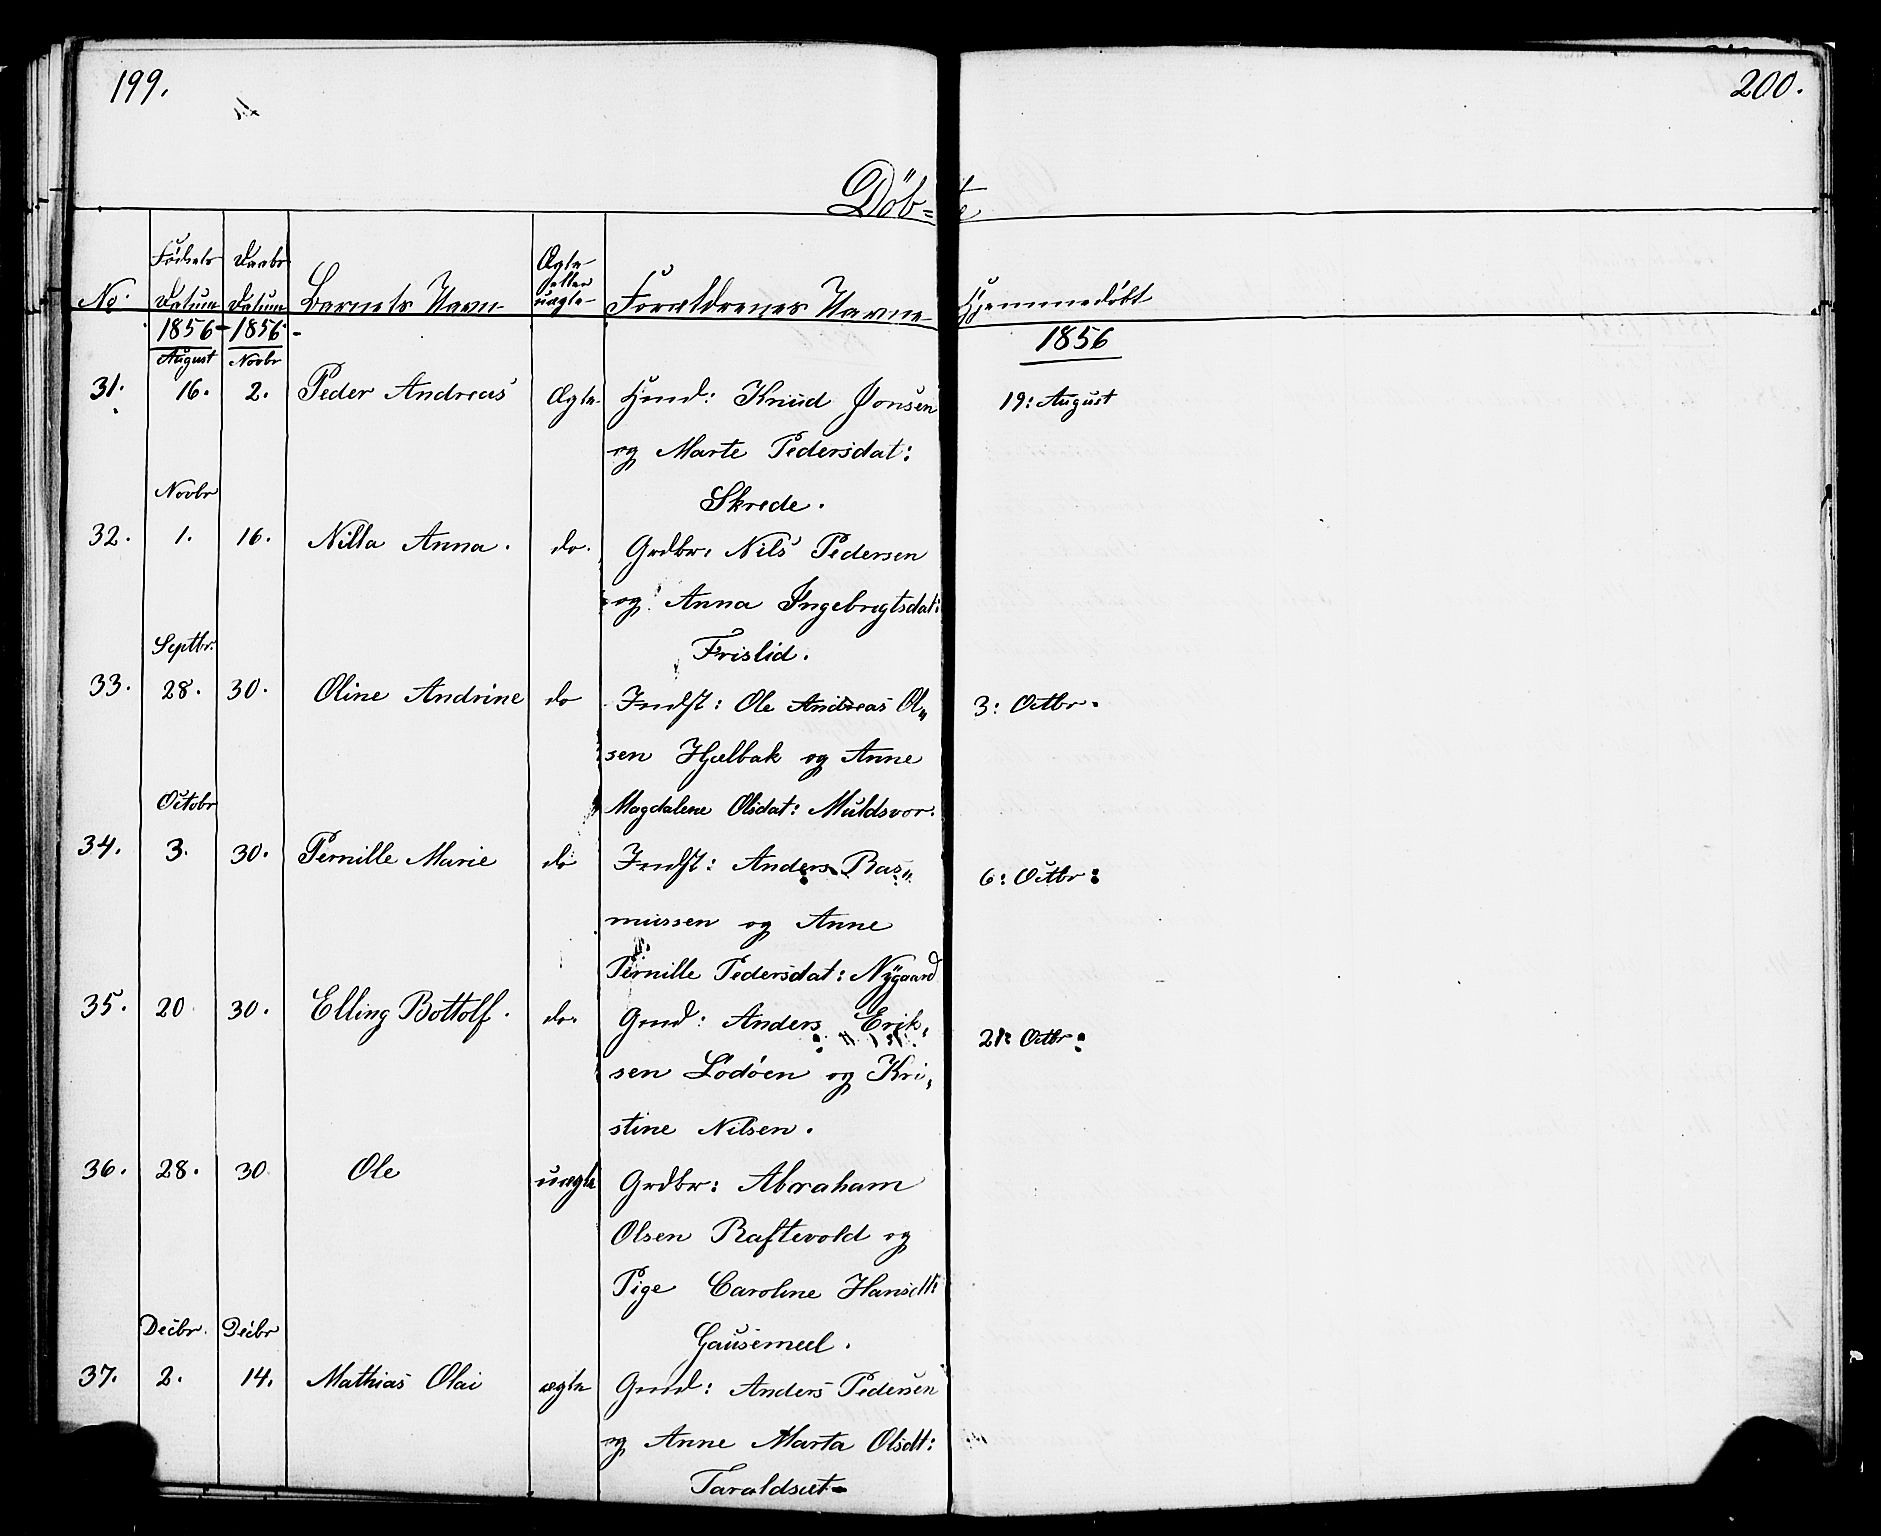 199.
200.
Döb=te
No.
Fødsels Datum
Daabs Datum
Barnets Navn
Ægte eller uægte
Forældrenes Navne
Hjemmedöbt
1856 - 1856 -
1856
August Novbr
31. 16. 2. Peder Andreas Ægte Gmd: Knud Jonsen 19: August
og Marte Pedersdat:
Novbr
Skrede.
32. 1. 16. Nilla Anna. do. Grdbr: Nils Pedersen
og Anna Ingebrigtsdat:
Septbr.
Frislid.
33. 28. 30. Oline Andrine do Indst: Ole Andreas Ol„ 3: Octbr.
sen Hjelbak og Anne
Octobr
Magdalene Olsdat: Muldsvor.
34. 3. 30. Pernille Marie do Indst: Anders Ras„ 6: Octbr:
mussen og Anne
Pernille Pedersdat: Nygaard
35. 20. 30. Elling Bottolf. do. Gmd: Anders Erik, 21: Octbr:
sen Lödöen og Kri,
stine Nilsen.
36. 28. 30 Ole uægte Grdbr: Abraham
Olsen Raftevold og
Pige Caroline Hansdt:
Decbr. Decbr
Gausemeel.
37. 2. 14. Mathias Olai ægte Gmd: Anders Pedersen
og Anne Marta Olsdt:
Taraldsæt